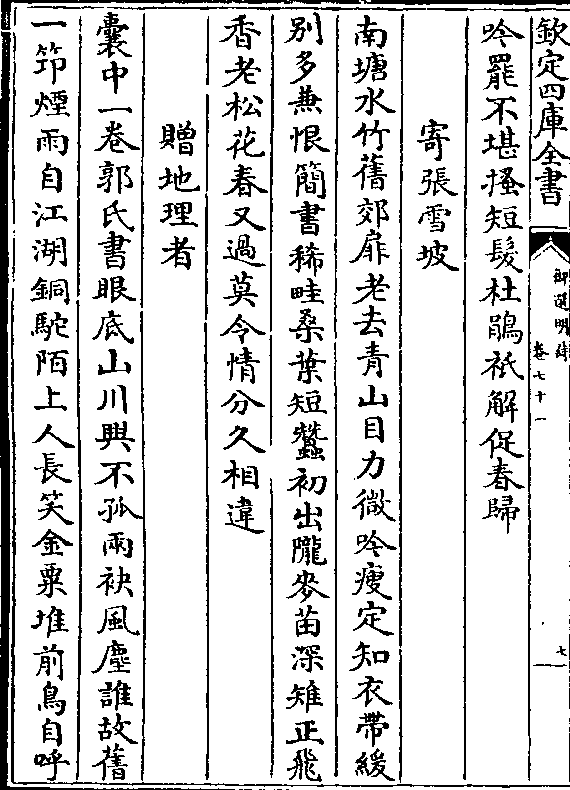 欽定四庫全書
御選明詩
卷七十一
七
吟罷不堪搔短髮杜鵑祇解促春歸
寄張雪坡
南塘水竹舊郊扉老去青山目力微吟瘦定知衣帶緩
别多兼恨簡書稀畦桑葉短蠶初出隴麥苗深雉正飛
香老松花春又過莫令情分久相違
贈地理者
囊中一卷郭氏書眼底山川興不孤兩袂風塵誰故舊
一笻煙雨自江湖銅駝陌上人長笑金粟堆前鳥自呼